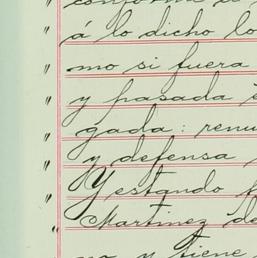 conforme á
á lo dicho lo
mo si fuera
y pasada
gada: renu
y defensa
Y estando
Martinez de
no y tiene